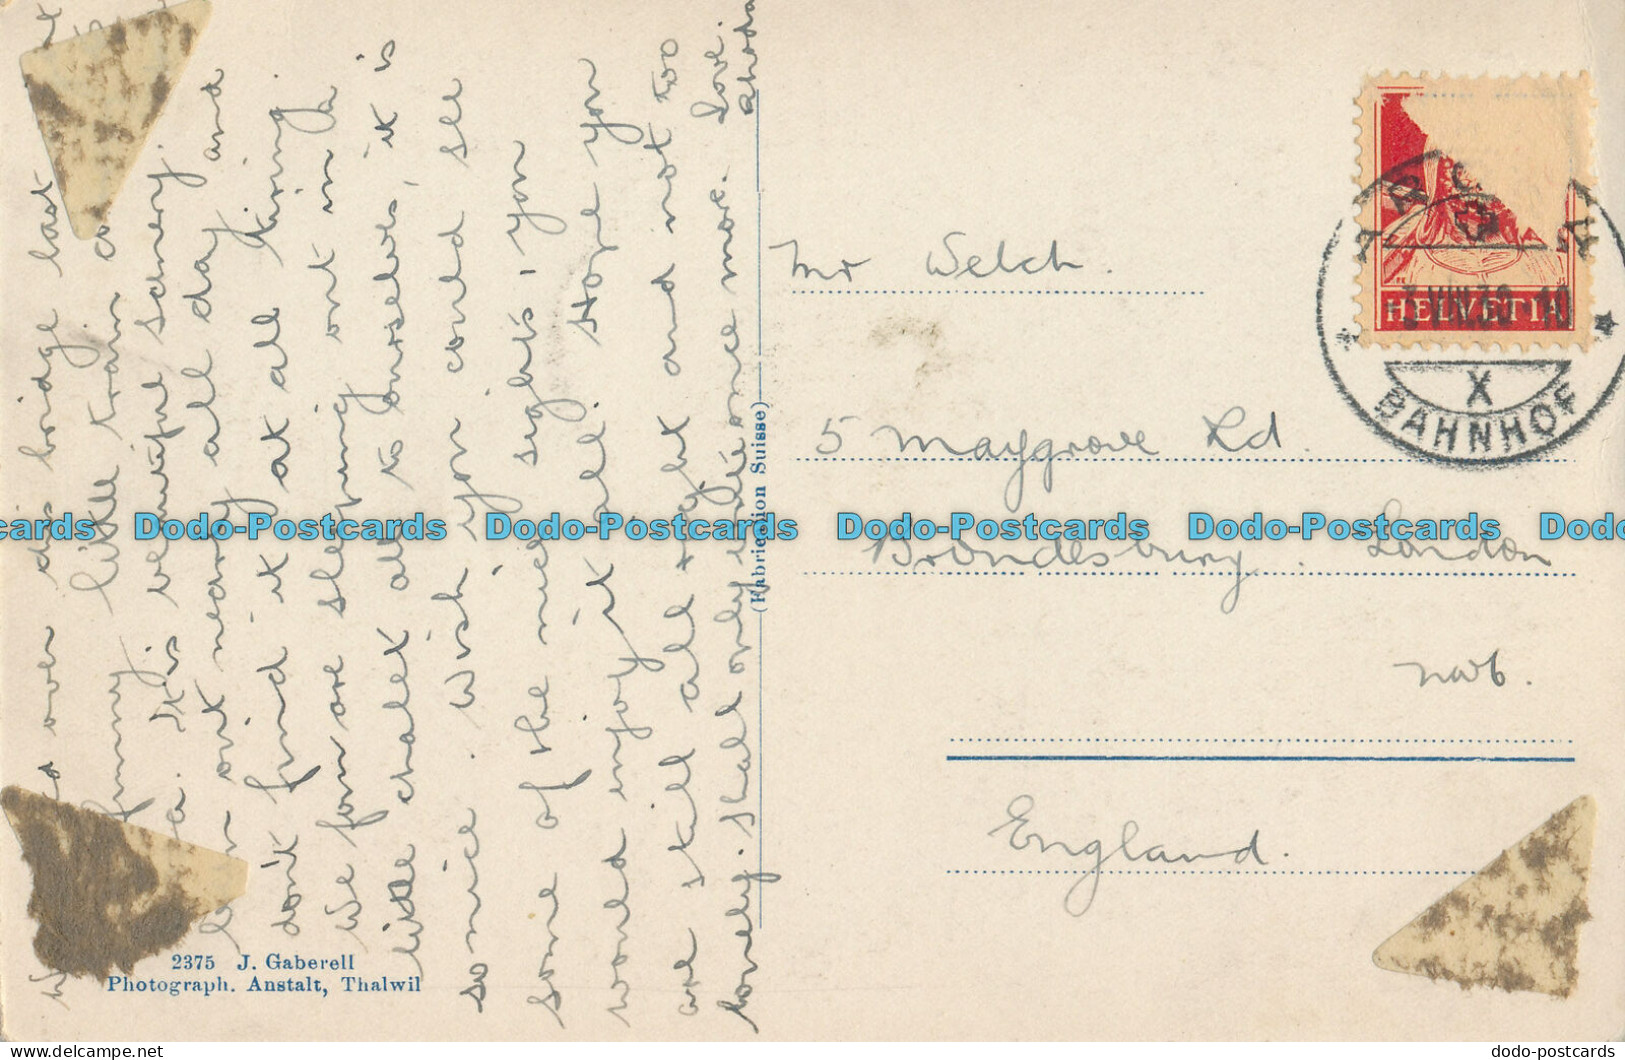 over this bridge last
funny little train
It is beautiful scenery.
out nearly all day and
don't find it at all tiring.
We four are sleeping out in a
little chalet all to ourselves, it is
so nice. Wish you could see
some of the nice sights, you
would enjoy it all. Hope you
are still all right and not too
lonely. Shall only write once more. Love.
Rhoda
2375 J. Gaberell
Photograph. Anstalt, Thalwil
(Fabrication Suisse)
Mr Welch.
5 Maygrove Rd.
Brondesbury. London
NW6.
England.
HELVETIA
3.VIII.36-10
X
BAHNHOF
Dodo-Postcards Dodo-Postcards Dodo-Postcards Dodo-Postcards
dodo-postcards
www.delcampe.net